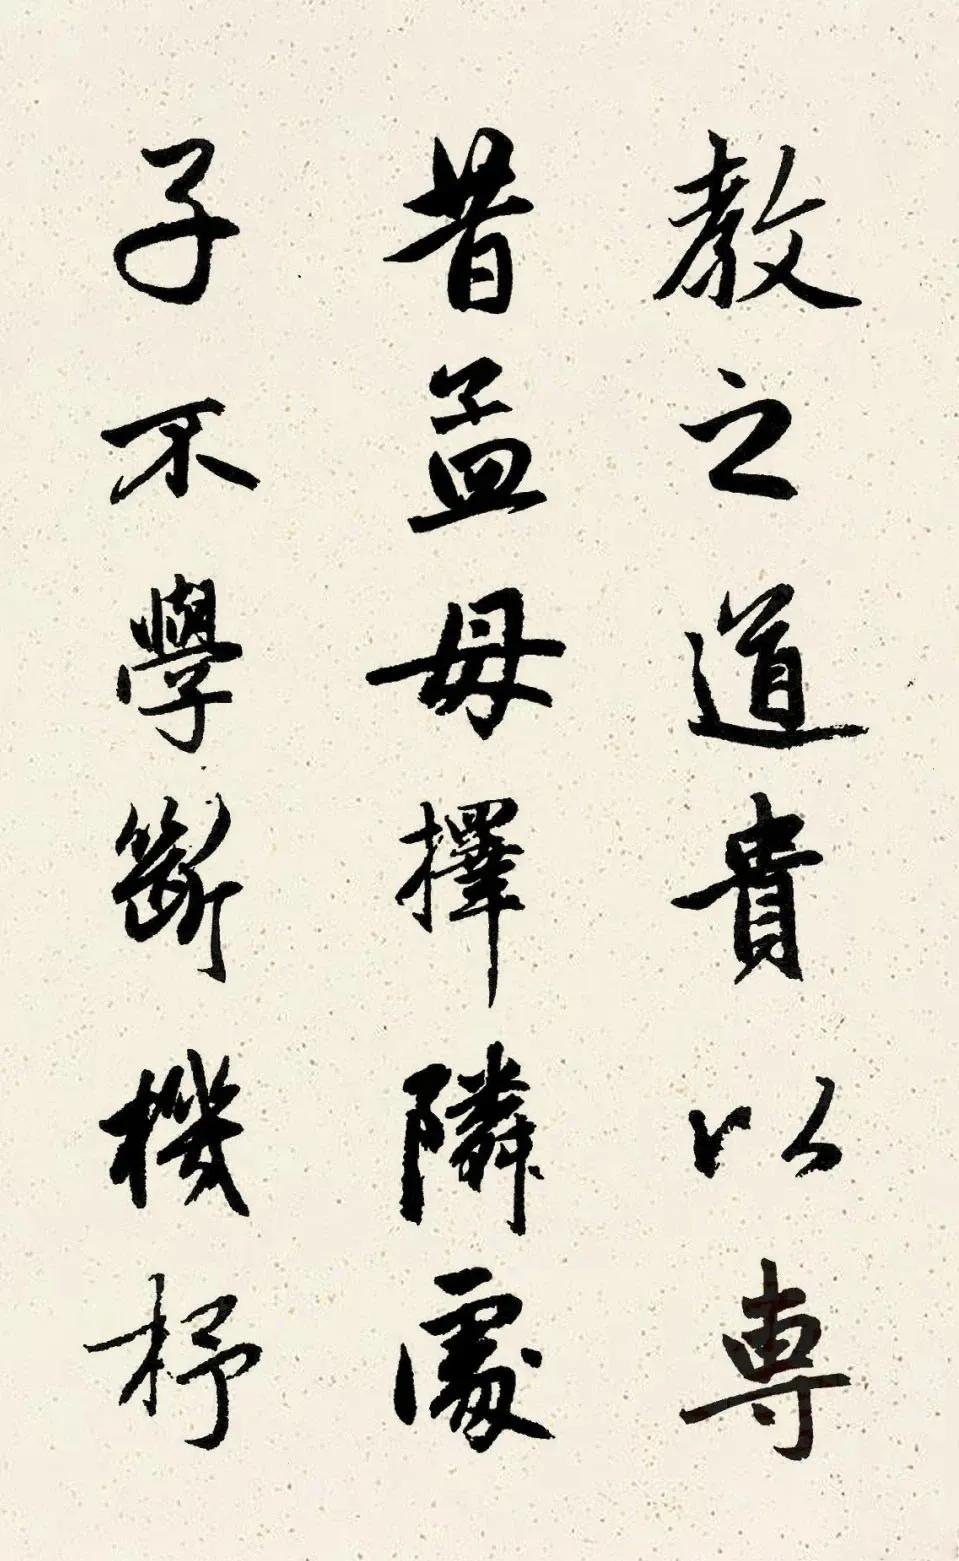 教之道貴以専
昔孟母擇隣處
子不學斷機杼